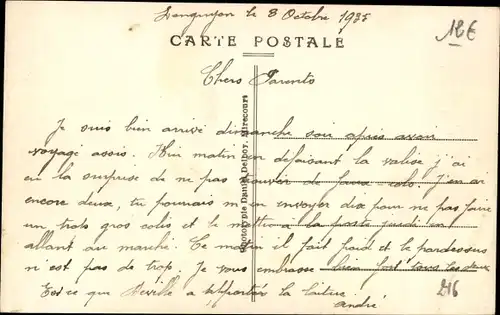 Longuyon le 8 Octobre 1935
12€
CARTE POSTALE
Chers Parents
Je suis bien arrivé dimanche soir après avoir
voyagé assis. Hier matin en défaisant la valise j'ai
eu la surprise de ne pas trouver de faux cols. J'en ai
encore deux, tu pourrais m'en envoyer dix pour ne pas faire
un trop gros colis et le mettre à la poste jeudi en
allant au marché. Ce matin il fait froid et le pardessus
n'est pas de trop. Je vous embrasse bien fort tous les deux
Est-ce que a apporté la
André
246
Phototypie Daniel Delboy, Mirecourt